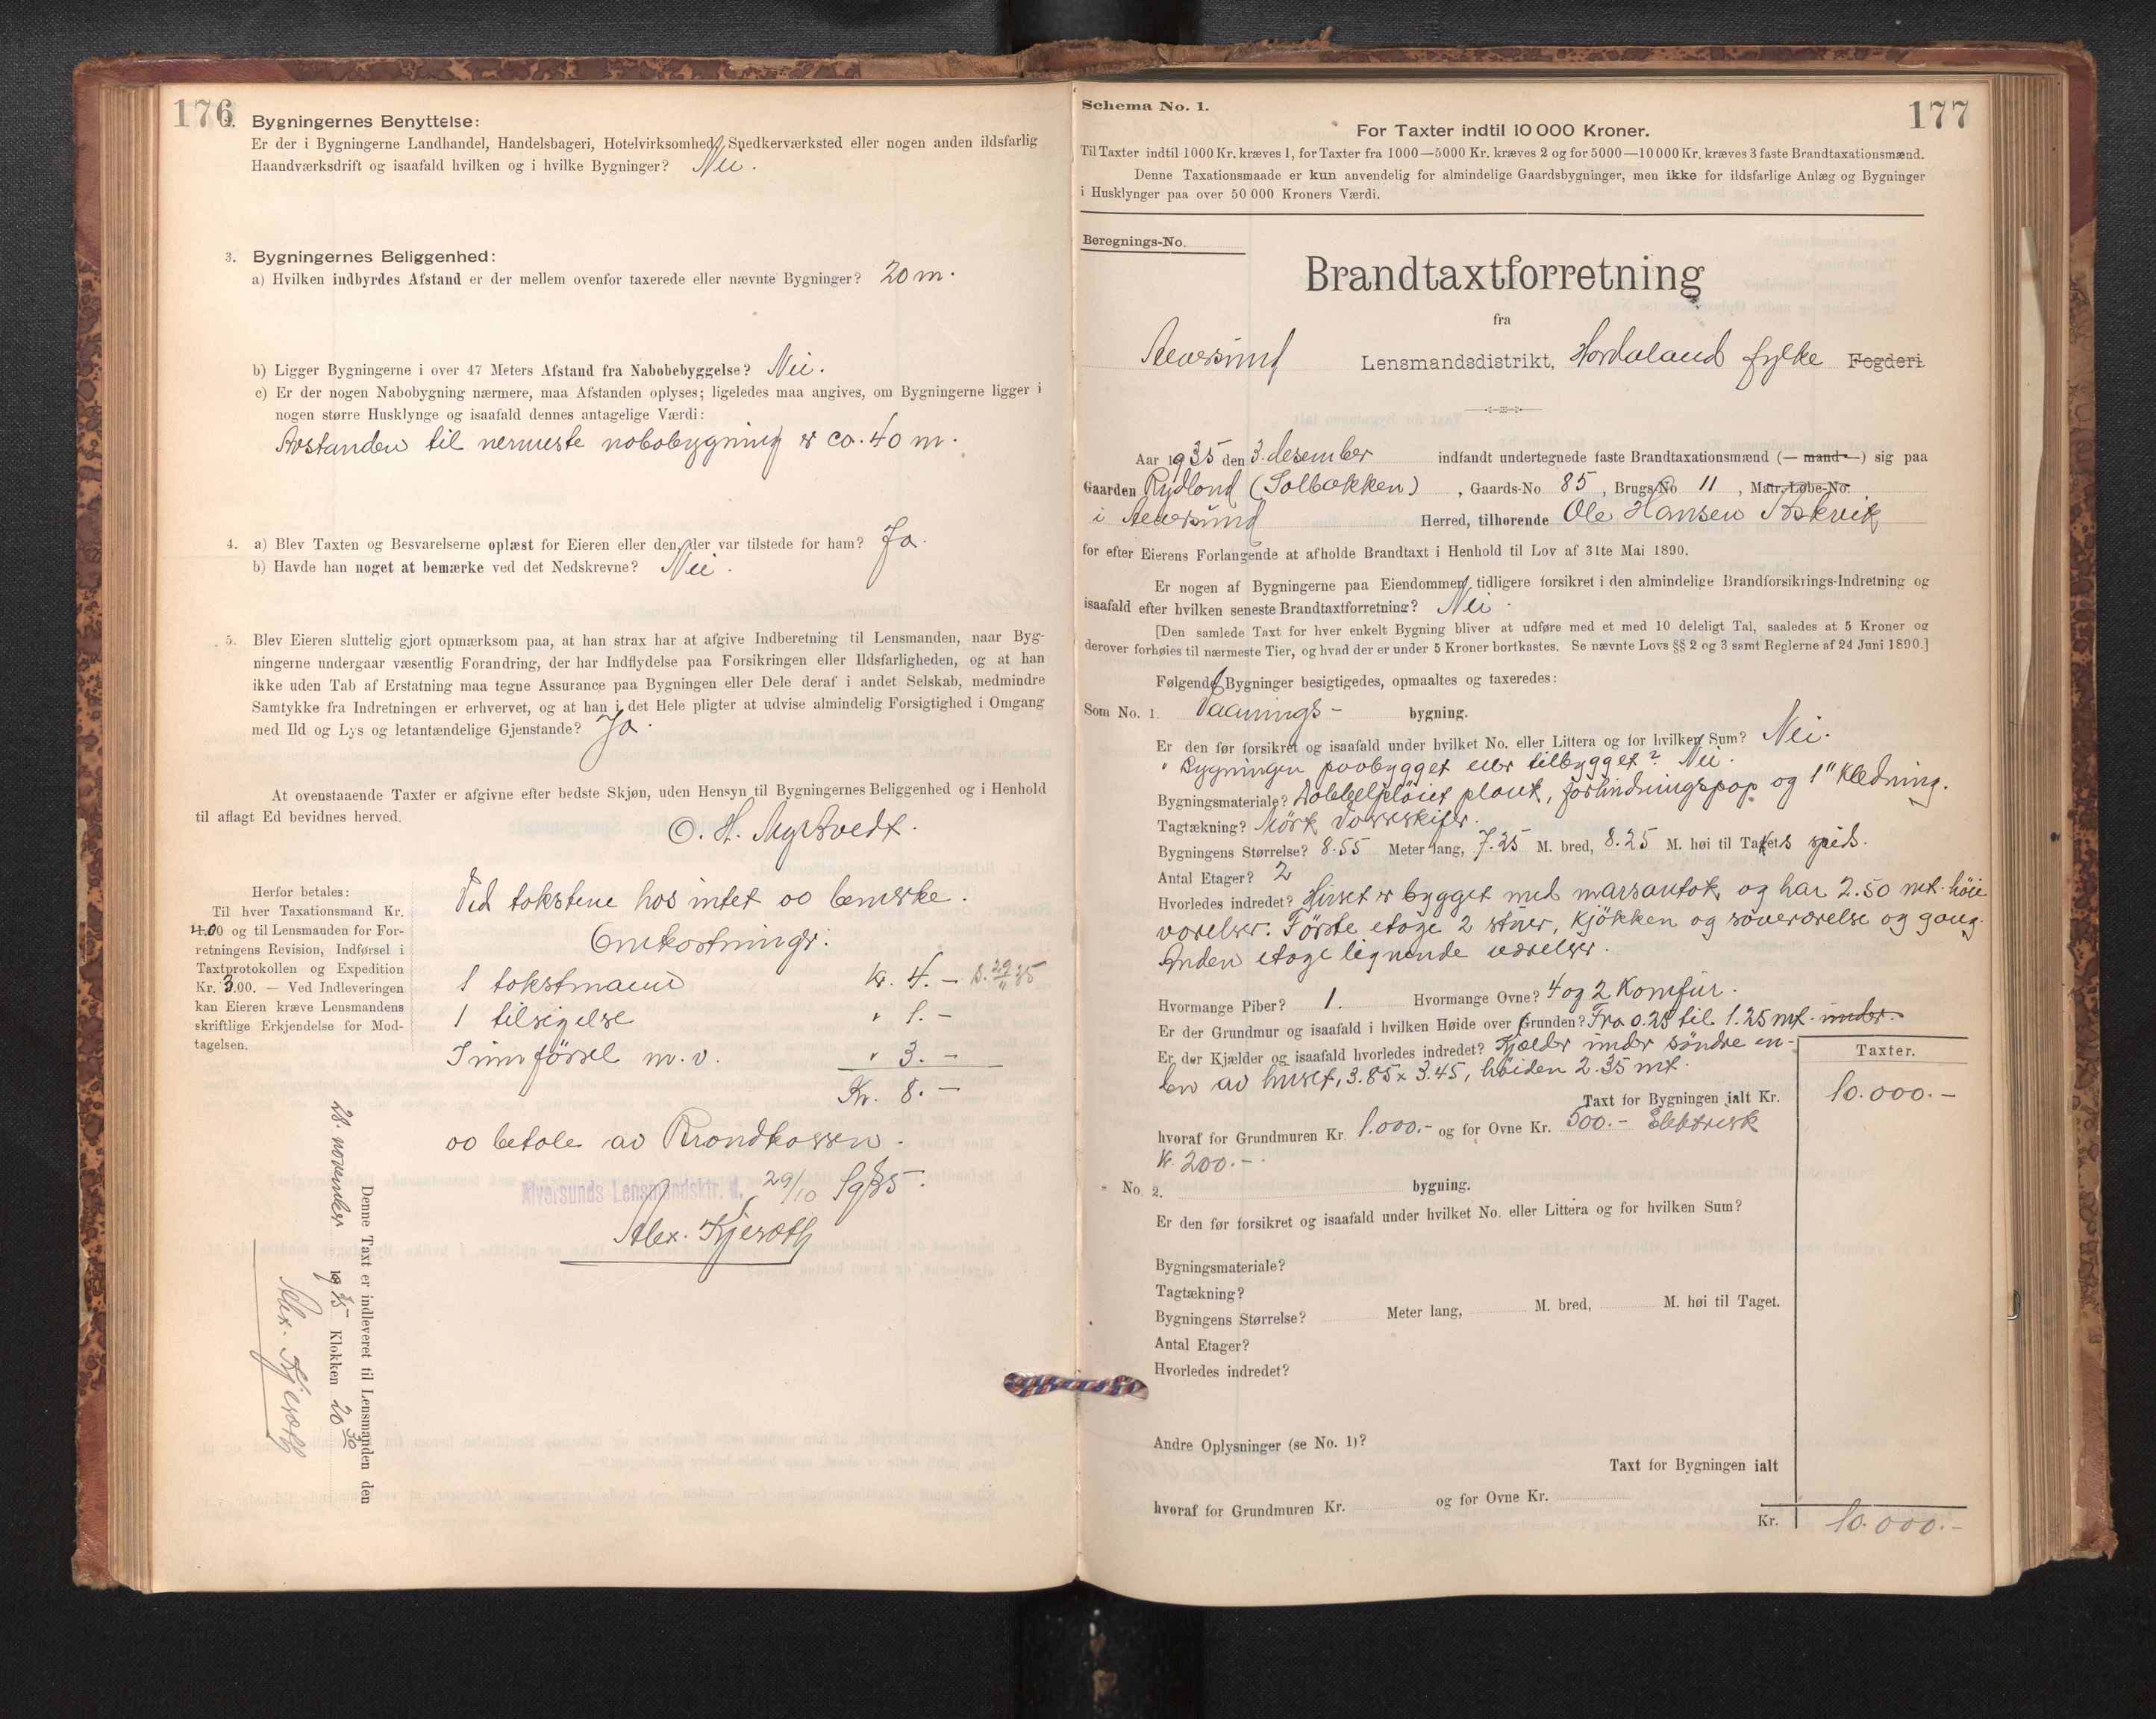 176
2. Bygningernes Benyttelse:
Er der i Bygningerne Landhandel, Handelsbageri, Hotelvirksomhed, Snedkerværksted eller nogen anden ildsfarlig
Haandværksdrift og isaafald hvilken og i hvilke Bygninger? Nei.
3. Bygningernes Beliggenhed:
a) Hvilken indbyrdes Afstand er der mellem ovenfor taxerede eller nævnte Bygninger? 20 m.
b) Ligger Bygningerne i over 47 Meters Afstand fra Nabobebyggelse? Nei.
c) Er der nogen Nabobygning nærmere, maa Afstanden oplyses; ligeledes maa angives, om Bygningerne ligger i
nogen større Husklynge og isaafald dennes antagelige Værdi:
Avstanden til nermeste nabobygning er ca. 40 m.
4. a) Blev Taxten og Besvarelserne oplæst for Eieren eller den, der var tilstede for ham? Ja.
b) Havde han noget at bemærke ved det Nedskrevne? Nei.
5. Blev Eieren sluttelig gjort opmærksom paa, at han strax har at afgive Indberetning til Lensmanden, naar Byg-
ningerne undergaar væsentlig Forandring, der har Indflydelse paa Forsikringen eller Ildsfarligheden, og at han
ikke uden Tab af Erstatning maa tegne Assurance paa Bygningen eller Dele deraf i andet Selskab, medmindre
Samtykke fra Indretningen er erhvervet, og at han i det Hele pligter at udvise almindelig Forsigtighed i Omgang
med Ild og Lys og letantændelige Gjenstande? Ja.
At ovenstaaende Taxter er afgivne efter bedste Skjøn, uden Hensyn til Bygningernes Beliggenhed og i Henhold
til aflagt Ed bevidnes herved.
O. H. Myrtvedt.
Herfor betales:
Til hver Taxationsmand Kr.
4.00 og til Lensmanden for For-
retningens Revision, Indførsel i
Taxtprotokollen og Expedition
Kr. 3.00. — Ved Indleveringen
kan Eieren kræve Lensmandens
skriftlige Erkjendelse for Mod-
tagelsen.
Ved takstene has intet aa bemerke.
Omkostninger:
1 takstmann kr. 4.- 29/11 35
1 tilsigelse " 1.-
Innførsel m.v. " 3.-
Kr. 8.-
aa betale av Brandkassen.
Alversunds Lensmandsktr. d. 29/10 1935.
Alex. Kjeroth
Denne Taxt er indleveret til Lensmanden den
28. november 1935 Klokken 20 30
Alex. Kjeroth
177
Schema No. 1.
For Taxter indtil 10 000 Kroner.
Til Taxter indtil 1000 Kr. kræves 1, for Taxter fra 1000—5000 Kr. kræves 2 og for 5000—10 000 Kr. kræves 3 faste Brandtaxationsmænd.
Denne Taxationsmaade er kun anvendelig for almindelige Gaardsbygninger, men ikke for ildsfarlige Anlæg og Bygninger
i Husklynger paa over 50 000 Kroners Værdi.
Beregnings-No.
Brandtaxtforretning
fra
Alversund Lensmandsdistrikt, Hordaland fylke Fogderi.
Aar 1935 den 3. desember indfandt undertegnede faste Brandtaxationsmænd (— mand —) sig paa
Gaarden Rydland (Solbakken), Gaards-No 85, Brugs-No 11, Matr.-Løbe-No.
i Alversund Herred, tilhørende Ole Hansen
for efter Eierens Forlangende at afholde Brandtaxt i Henhold til Lov af 31te Mai 1890.
Er nogen af Bygningerne paa Eiendommen tidligere forsikret i den almindelige Brandforsikrings-Indretning og
isaafald efter hvilken seneste Brandtaxtforretning? Nei.
[Den samlede Taxt for hver enkelt Bygning bliver at udføre med et med 10 deleligt Tal, saaledes at 5 Kroner og
derover forhøies til nærmeste Tier, og hvad der er under 5 Kroner bortkastes. Se nævnte Lovs §§ 2 og 3 samt Reglerne af 24 Juni 1890.]
Følgende Bygninger besigtigedes, opmaaltes og taxeredes:
Som No. 1. Vaanings- bygning.
Er den før forsikret og isaafald under hvilket No. eller Littera og for hvilken Sum? Nei.
" Bygningen paabygget eller tilbygget? Nei.
Bygningsmateriale? Dobbelpløiet plank, forhudningspap og 1" Kledning.
Tagtækning? Mörk Vosseskifer.
Bygningens Størrelse? 8.55 Meter lang, 7.25 M. bred, 8.25 M. høi til Takets spids.
Antal Etager? 2
Hvorledes indredet? Huset er bygget med mansardtak og har 2.50 mt. høie
værelser. Første etage 2 stuer, kjøkken og soveværelse og gang.
Anden etage lignende værelser.
Hvormange Piber? 1. Hvormange Ovne? 4 og 2 Komfur.
Er der Grundmur og isaafald i hvilken Høide over Grunden? Fra 0.25 til 1.25 mt. under.
Er der Kjælder og isaafald hvorledes indredet? Kjælder under søndre en-
den av huset, 3.85 x 3.45, høiden 2.35 mt.
Taxter.
Taxt for Bygningen ialt Kr. 10.000.-
hvoraf for Grundmuren Kr. 1.000.- og for Ovne Kr. 500.- Elektrisk
kr. 200.-
" No. 2. bygning.
Er den før forsikret og isaafald under hvilket No. eller Littera og for hvilken Sum?
Bygningsmateriale?
Tagtækning?
Bygningens Størrelse? Meter lang, M. bred, M. høi til Taget.
Antal Etager?
Hvorledes indredet?
Andre Oplysninger (se No. 1)?
Taxt for Bygningen ialt
hvoraf for Grundmuren Kr. og for Ovne Kr.
Kr. 10.000.-